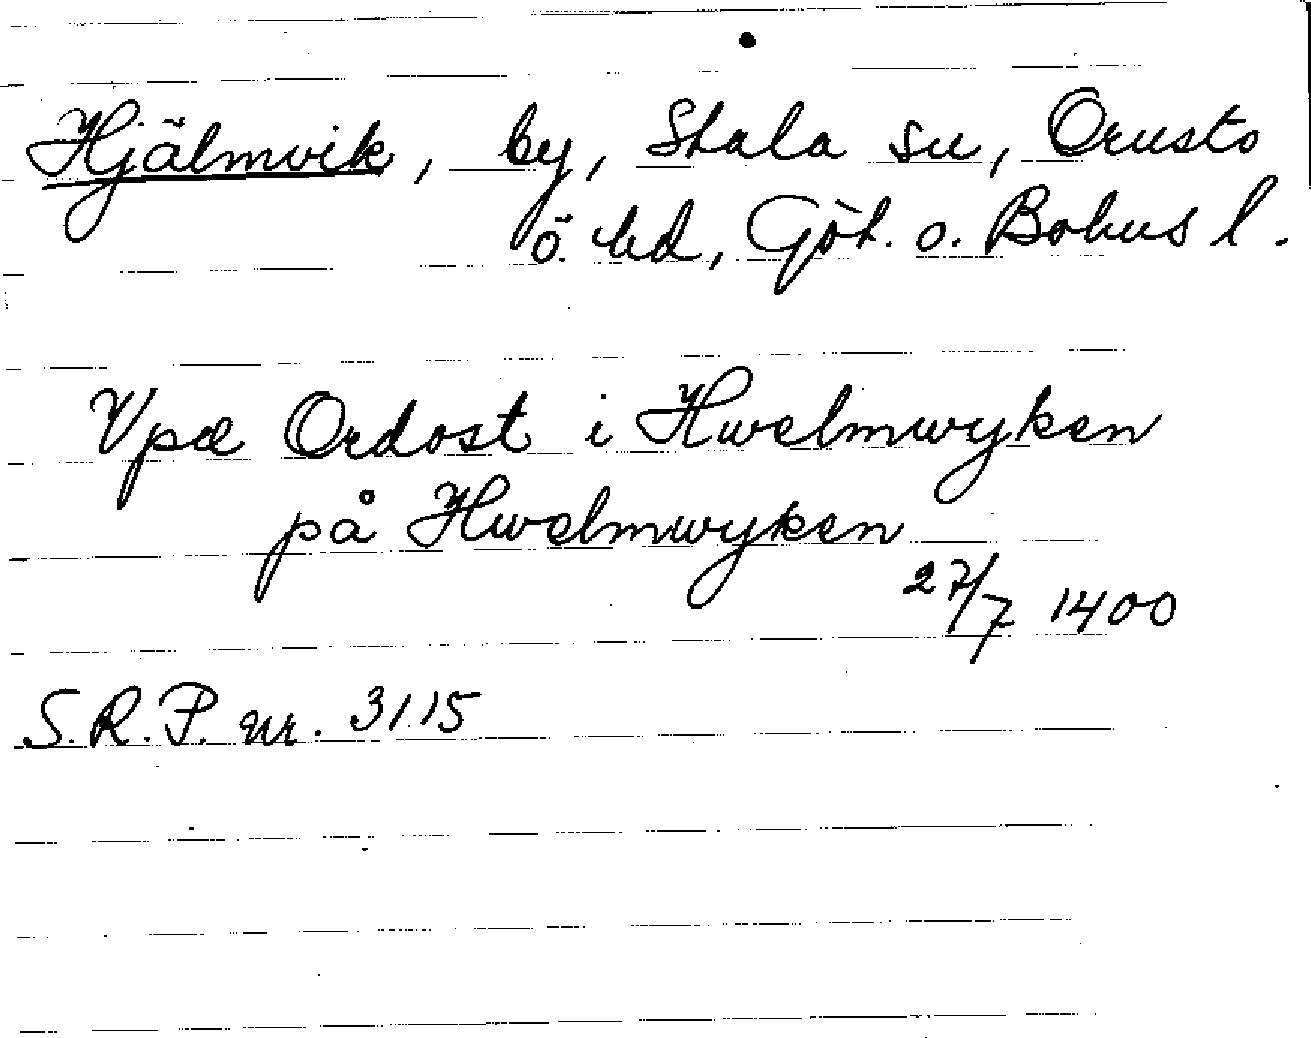 Hjälmvik, by, Stala sn, Orusts
ö. hd, Göt. o. Bohus l.
Vpæ Ordost i Hwelmwyken
på Hwelmwyken
27/7 1400
S.R.P. nr. 3115